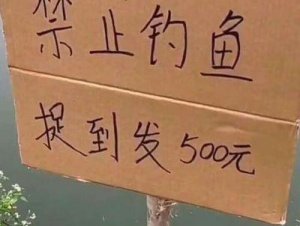 禁止钓鱼
捉到发500元